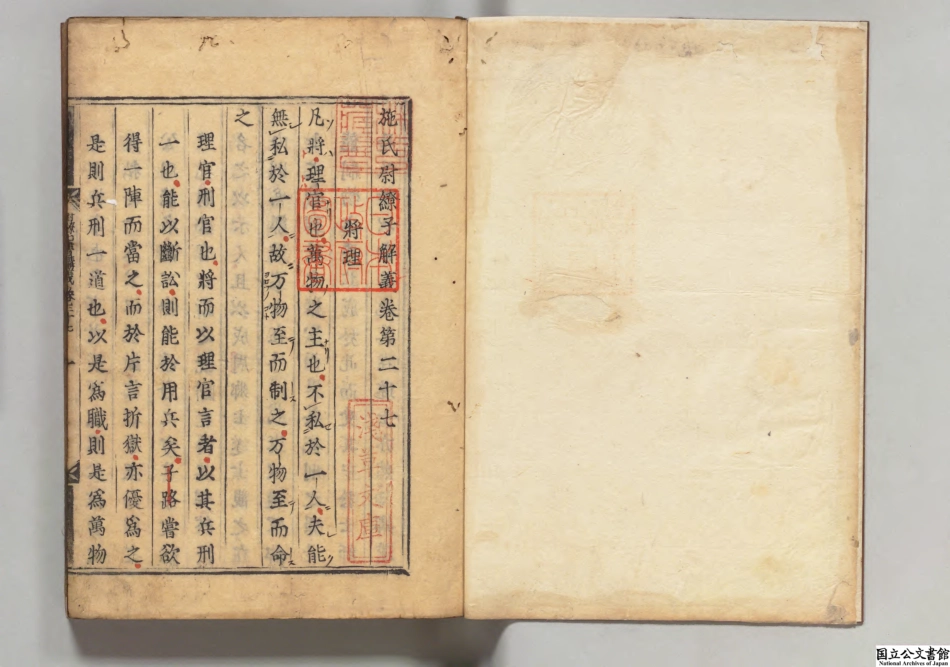 施氏尉繚子解義卷第二十七
將理
凡將理官也萬物之主也不私於一人夫能
無私於一人故万物至而制之万物至而命
之
理官刑官也將而以理官言者以其兵刑
一也能以斷訟則能於用兵矣子路嘗欲
得一陣而當之而於片言折獄亦優爲之
是則兵刑一道也以是爲職則是爲萬物
淺草文庫
日本
政府
圖書
国立公文書館
National Archives of Japan